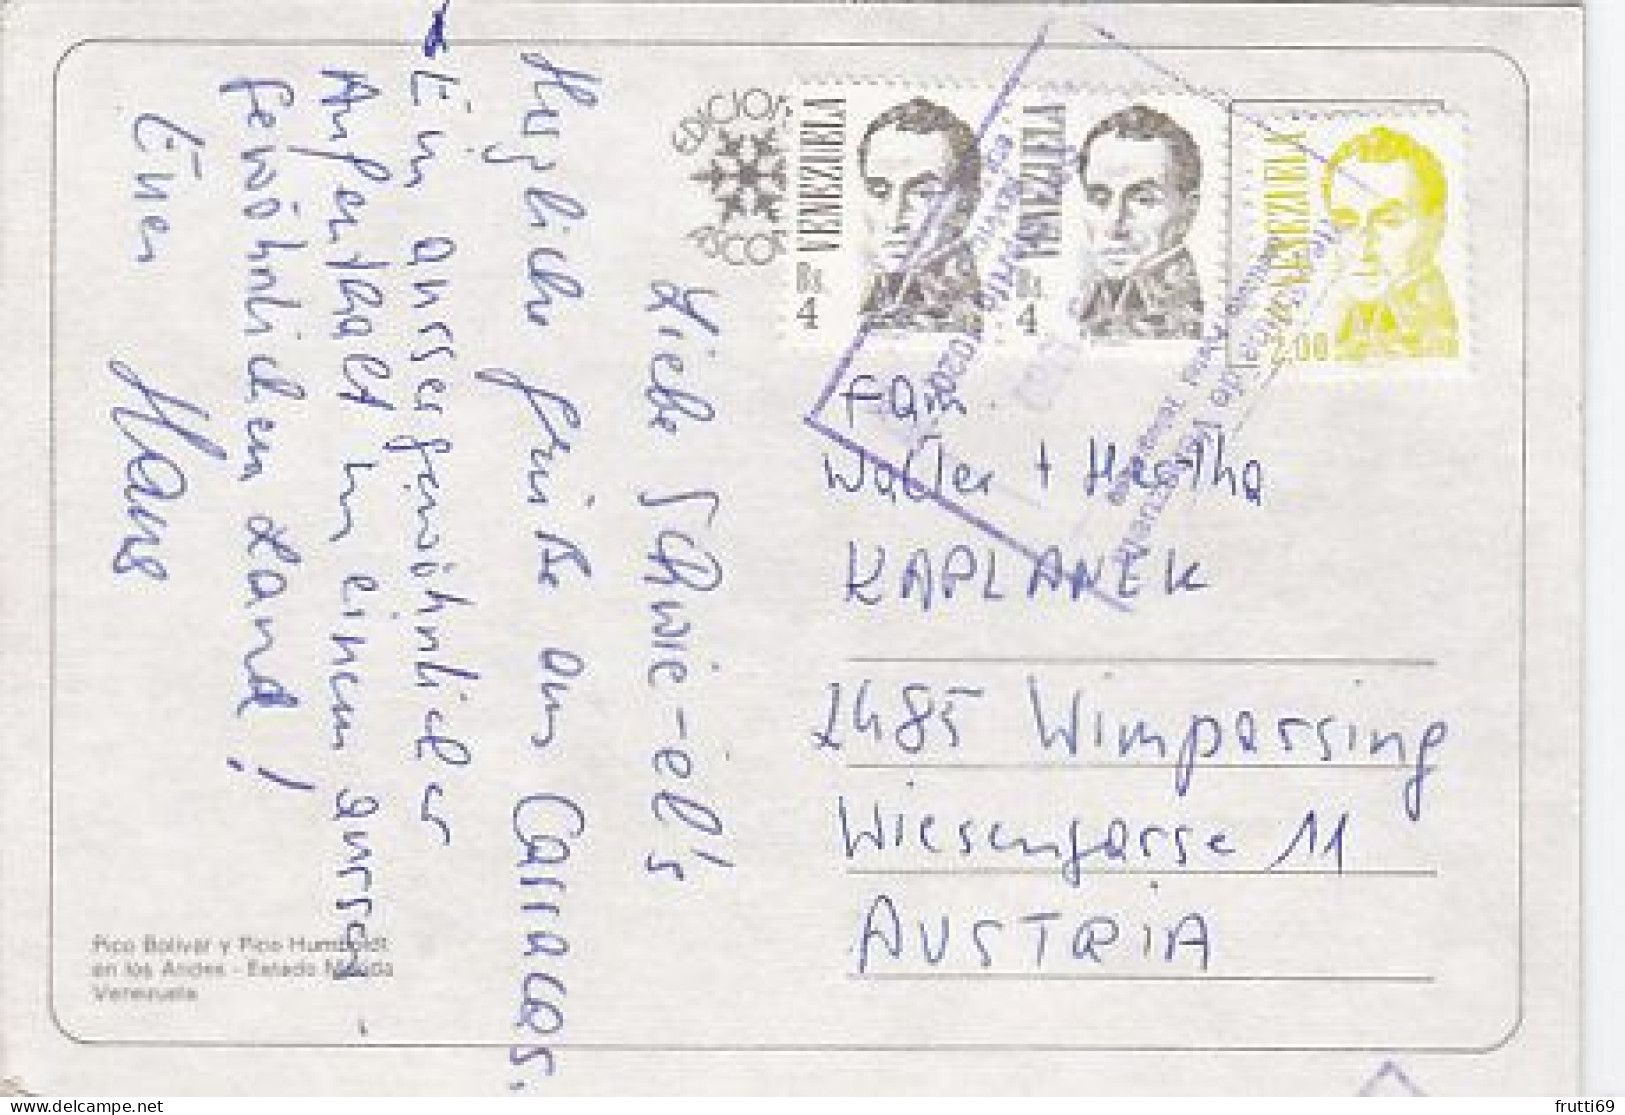 Liebe Schwie-el's
Herzliche Grüße aus Carracas.
Ein aussergewöhnlicher
Aufenthalt in einem ausser-
gewöhnlichen Land!
Euer
Hans
EDICIOS
ASCOT
VENEZUELA
Bs.
4
VENEZUELA
Bs.
4
VENEZUELA
2.00
FAM.
Walter + Hertha
KAPLANEK
2485 Wimpassing
Wiesengasse 11
AUSTRIA
Pico Bolívar y Pico Humboldt
en los Andes - Estado Mérida
Venezuela
frutti69